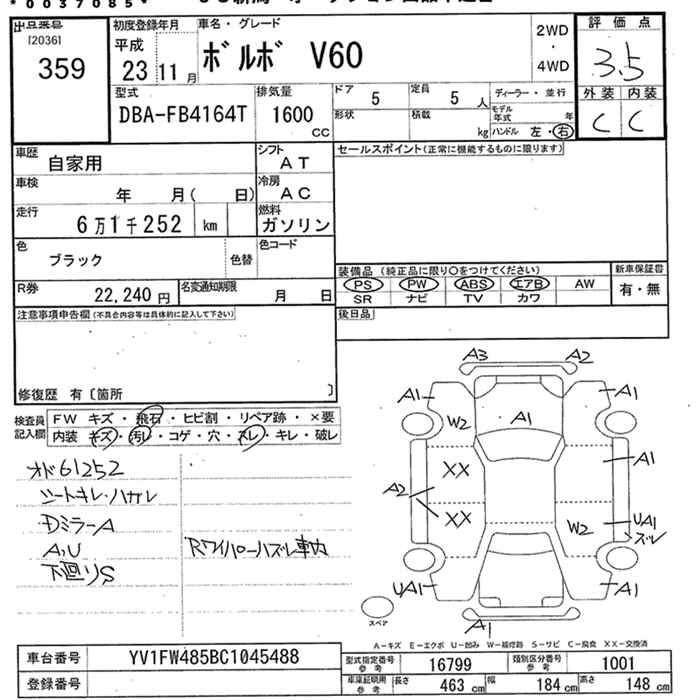 *0037085*
出品番号
[2036]
359
初度登録年月
平成
23 11月
車名・グレード
ボルボ V60
2WD
・
4WD
評価点
3.5
外装 内装
C C
型式
DBA-FB4164T
排気量
1600
CC
ドア
5
定員
5 人
形状
積載
kg
ディーラー・並行
モデル年式 年
ハンドル 左・右
車歴
自家用
シフト
AT
車検
年 月( 日)
冷房
AC
走行
6万1千252 km
燃料
ガソリン
色
ブラック
色替
色コード
R券
22,240円
名変通知期限
月 日
セールスポイント(正常に機能するものに限ります)
装備品 (純正品に限り○をつけてください)
PS PW ABS エアB AW
SR ナビ TV カワ
新車保証書
有・無
後日品
注意事項申告欄(不具合内容等は具体的に記入して下さい)
修復歴 有〔箇所 〕
検査員記入欄
FW キズ・飛石・ヒビ割・リペア跡・×要
内装 キズ・汚レ・コゲ・穴・スレ・キレ・破レ
オド61252
シートキレ・ハガレ
DミラーA
A,U
下廻りS
Rワイパーハズレ車内
A3 A2
A1 A1
W2 A1
XX A1
A2
XX W2 UA1
ズレ
UA1 A1
A1
スペア
A-キズ E-エクボ U-凹み W-補修跡 S-サビ C-腐食 XX-交換済
車台番号
YV1FW485BC1045488
登録番号
型式指定番号
参考
16799
類別区分番号
参考
1001
車庫証明用
参考
長さ 463 cm
幅 184 cm
高さ 148 cm